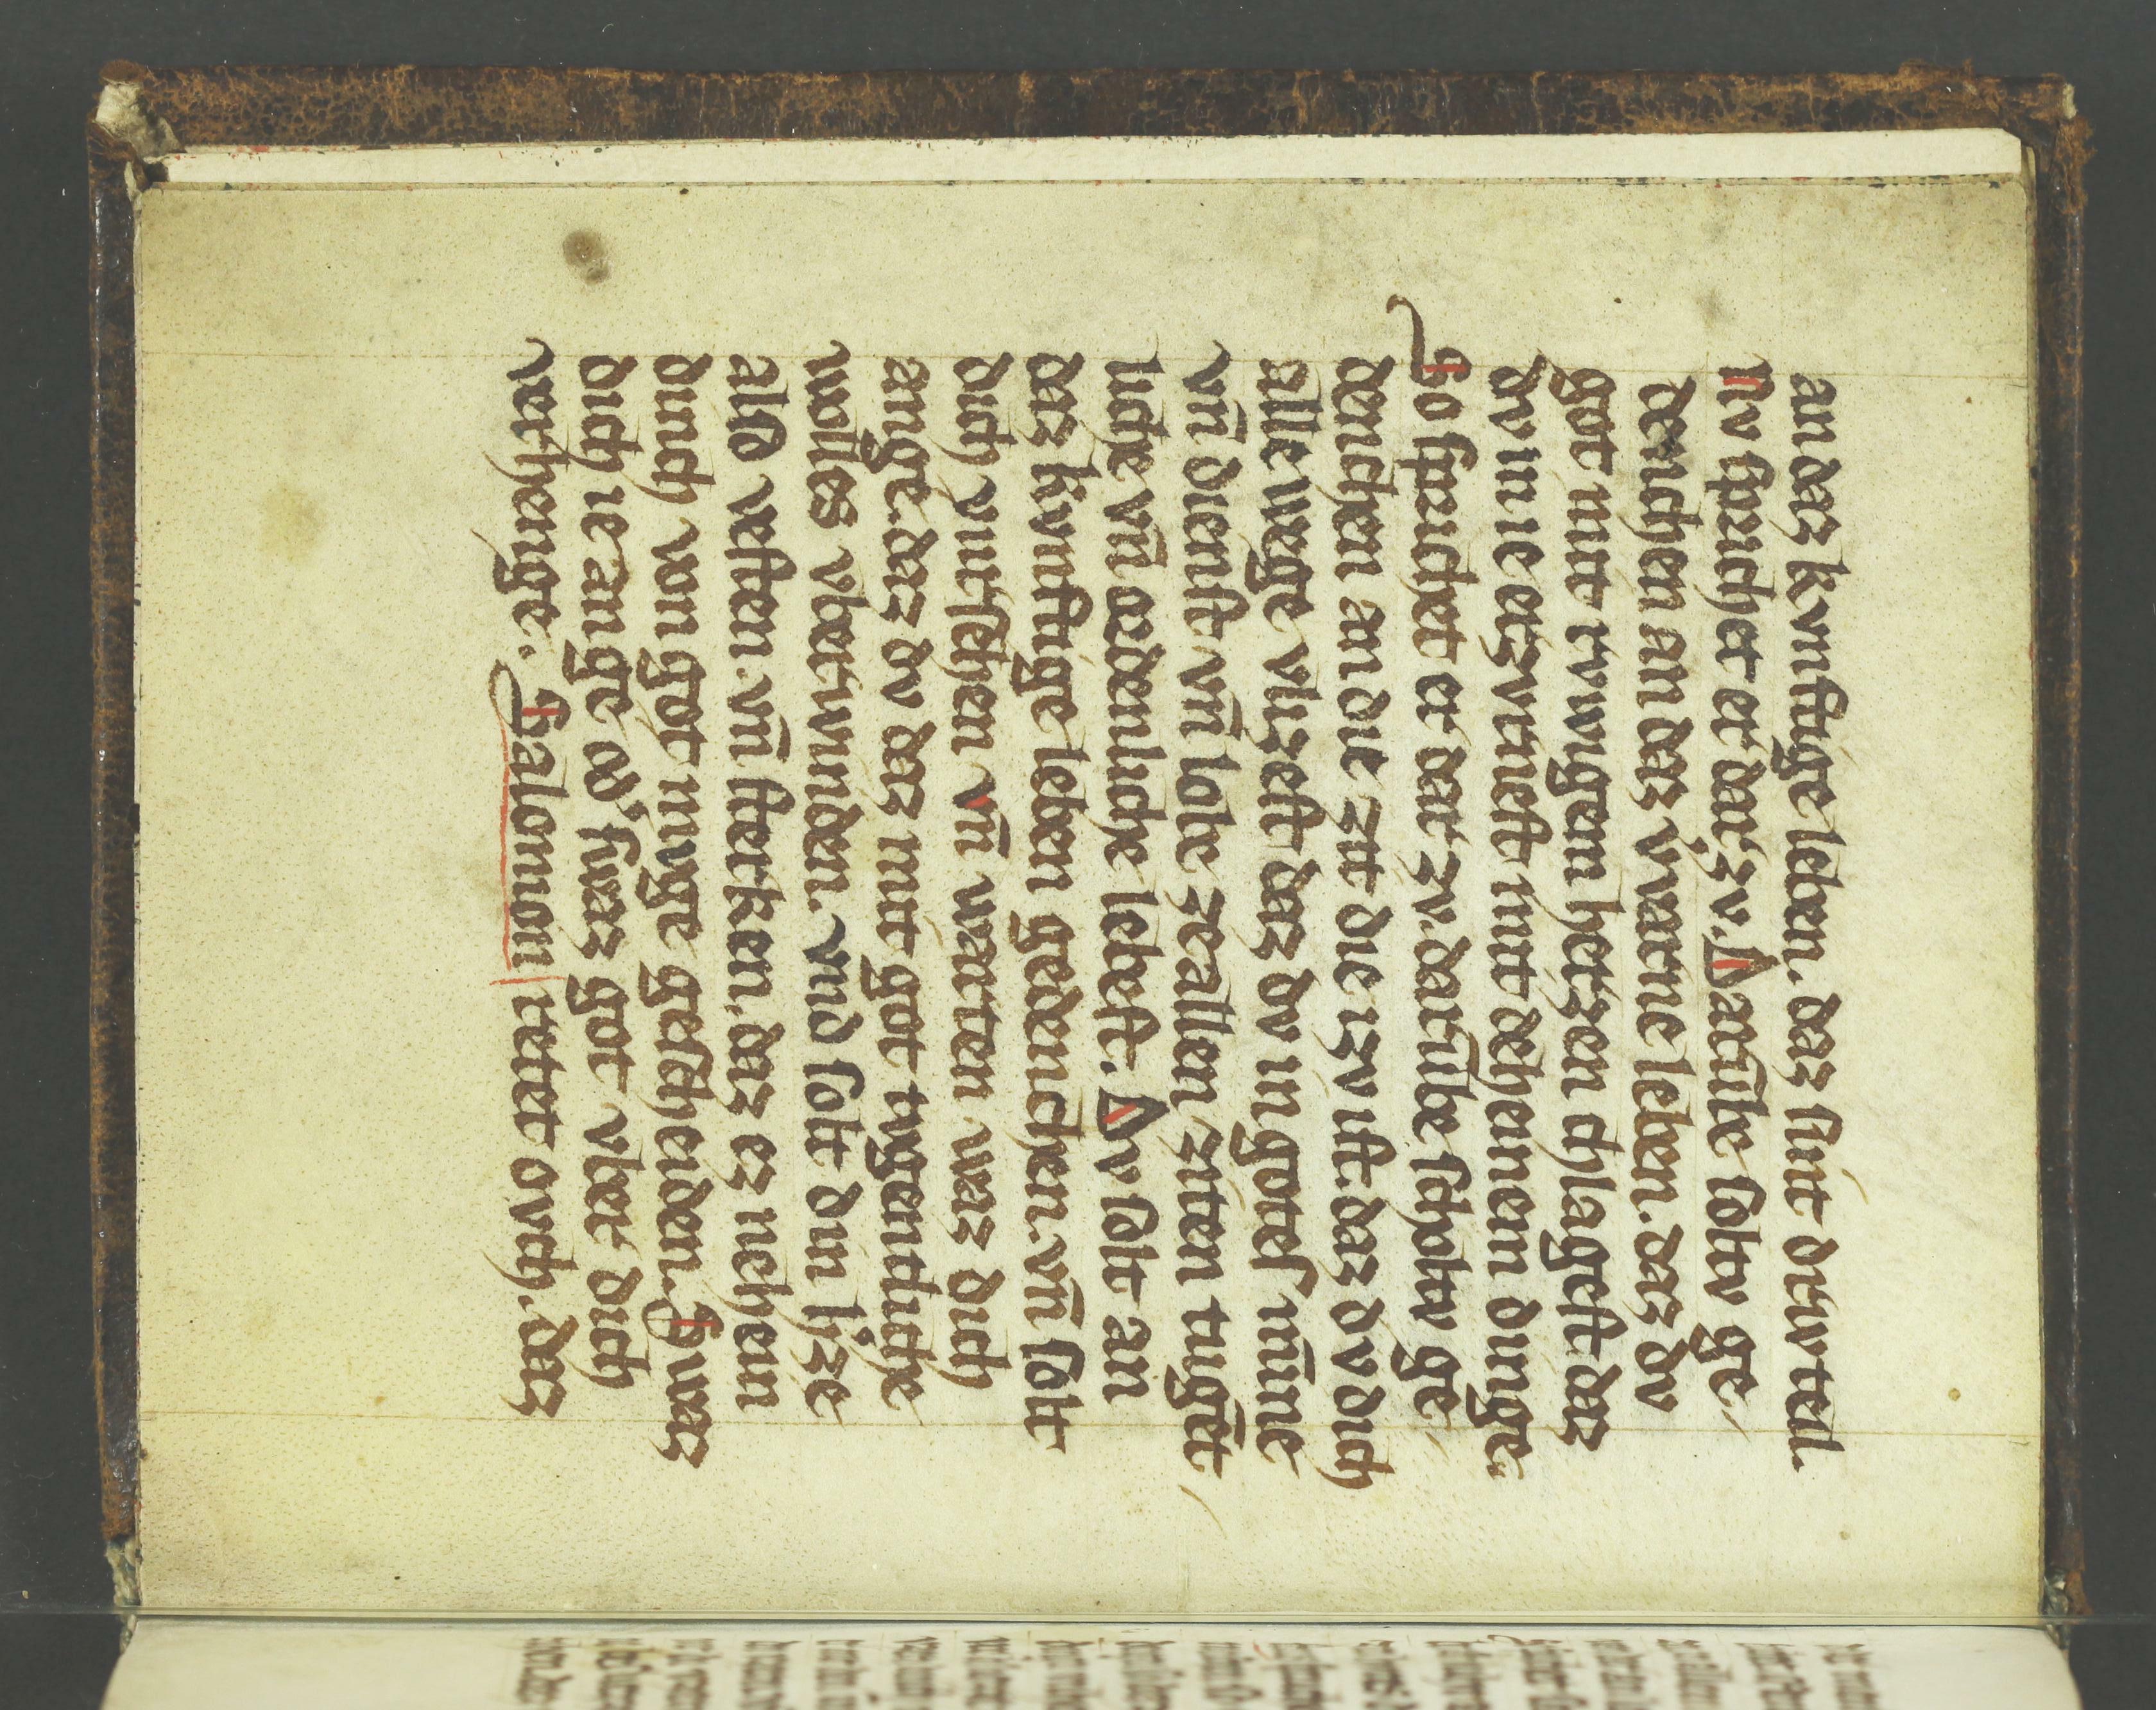 an daz kvnftige leben. daz sint drv teil.
Nv sprichet er dar zv. Darūbe soltv ge
denchen an daz v̇varne leben. daz dv
got mit rwigem hertzen chlagest daz
dv in ie erzvrnest mit deheinem dinge.
So sprichet er dar zv. darūbe scholtv ge
denchen an die zit die izv ist. daz dv dich
alle wege vlizest daz dv in gotes minne
vn̄ dienst vn̄ lobe ze allen ziten tugēt
liche vn̄ ordenliche lebest. Dv solt an
daz kvnftige leben gedenchen. vn̄ solt
dich vursehen vn̄ warten waz dich
ange. daz dv daz mit got tvgentliche
wolles vberwinden. vnd solt din h̓ze
also vesten. vn̄ sterken. daz ez nehein
dinch von got mvge gescheiden. Swaz
dich ie ange od̓ swaz got vber dich
verhenge. Salomon retet ovch. daz